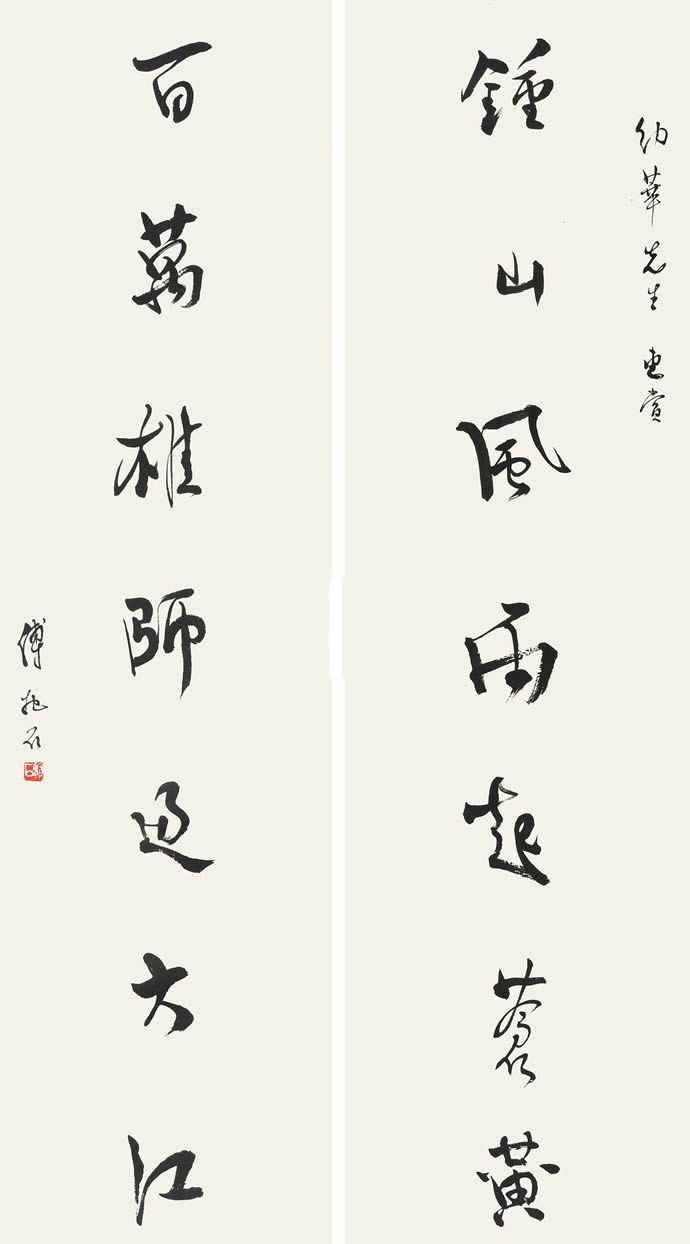 幼華先生 惠賞
鍾山風雨起蒼黃
百萬雄師過大江
傅抱石